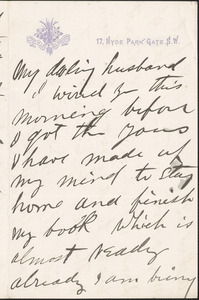 17, HYDE PARK GATE. S.W.
My darling husband
I wired to this
morning before
I got the yours
I have made up
my mind to stay
home and finish
my book which is
almost ready
already I am being